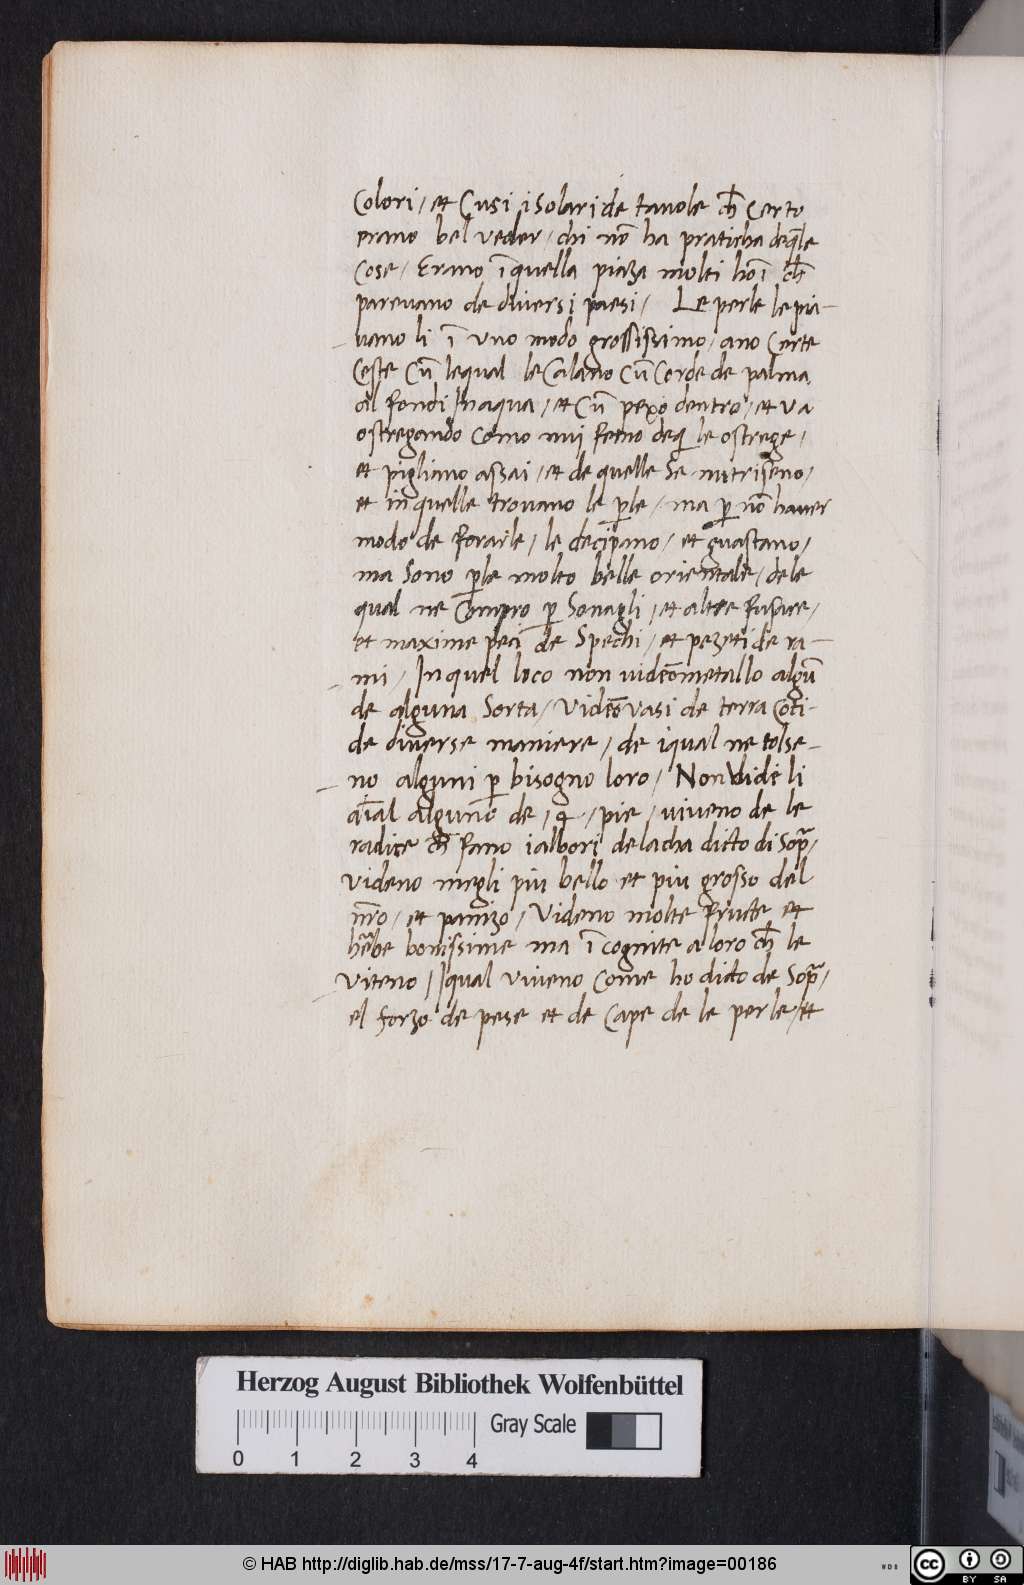 Colori / et Cusi i Solari de tauole ch̄ Certo
erano bel veder / chi nō ha praticha de q̄le
Cose / Erano ī quella piaza molti hoī ch̄
pareuano de diuersi paesi / Le perle le pia-
uano li ī uno modo grossissimo / ano Certe
Ceste Cū lequal le Calano Cū Corde de palma
al fondi In aqua / et Cū pexo dentro / et va
ostregando Como nui femo de q̄ le ostrege /
et pigliano assai / et de quelle Se nutriseno /
et in quelle trouano le ꝑle / ma ꝑ nō hauer
modo de forarle / le decipano / et guastano /
ma Sono ꝑle molto belle orientale / dele
qual ne Compro ꝑ Sonagli / et altre fusare /
et maxime peci de Spechi / et pezeti de ra-
mi / In quel loco non videno metallo algū
de alguna Sorta / Videno vasi de terra Coti
de diuerse maniere / de iqual ne tolse-
no alguni ꝑ bisogno loro / Non Vide li
aīal algunō de / 4 / pie / viueno de le
radice ch̄ fano i albori de lacha dicto di Sop̄ /
videno megli piu bello et piu grosso del
nr̄o / et panizo / Videno molte fructe et
herbe bonissime ma ī cognite a loro ch̄ le
viteno / Iqual viueno Come ho dicto de Sop̄ /
el forzo de pese et de Cape de le perle / et
Herzog August Bibliothek Wolfenbüttel
Gray Scale
0 1 2 3 4
© HAB http://diglib.hab.de/mss/17-7-aug-4f/start.htm?image=00186
WDB
cc BY SA